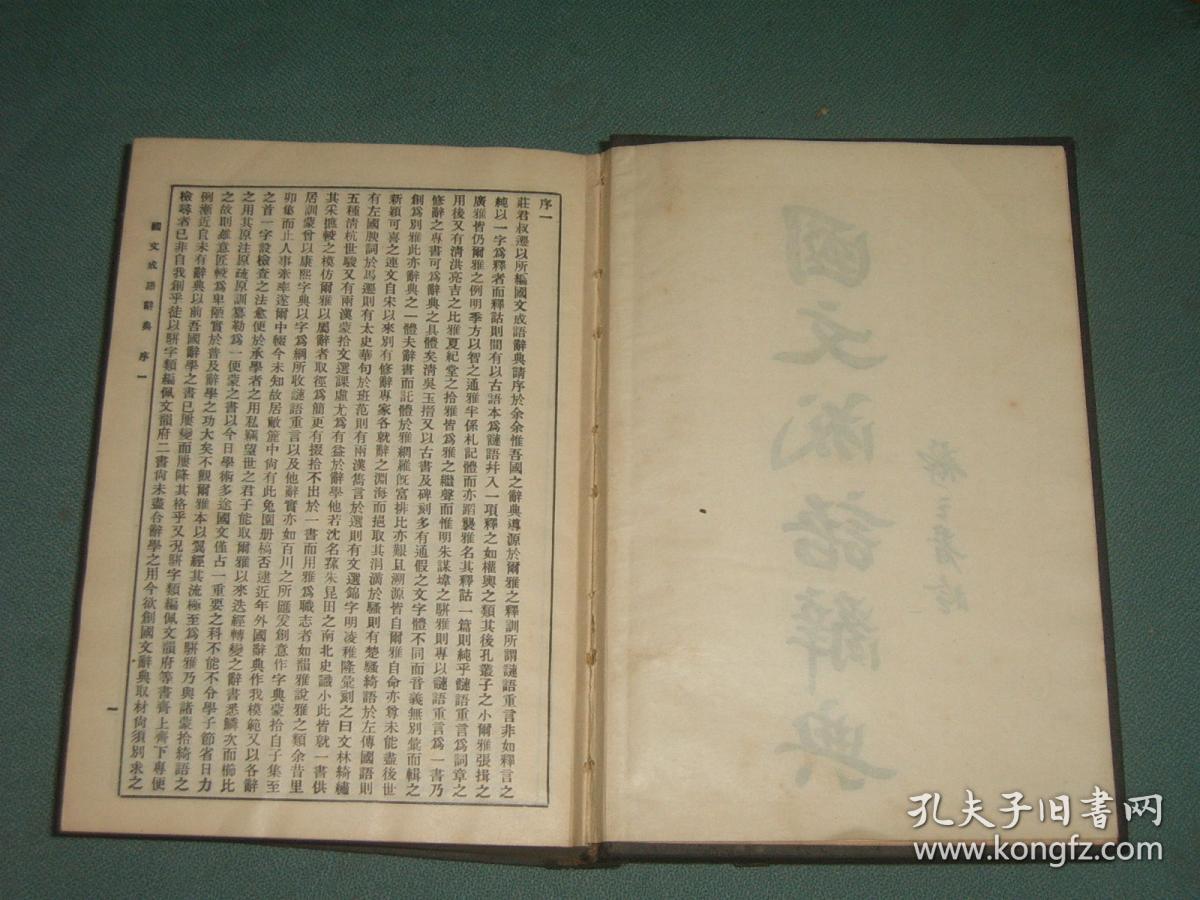 國文成語辭典
序一
莊君叔遷以所編國文成語辭典請序於余余惟吾國之辭典導源於爾雅之釋訓所謂謰語重言非如釋言之
純以一字爲釋者而釋詁則間有以古語本爲謰語幷入一項釋之如權輿之類其後孔叢子之小爾雅張揖之
廣雅皆仍爾雅之例明季方以智之通雅半係札記體而亦蹈襲雅名其釋詁一篇則純乎謰語重言爲詞章之
用後又有清洪亮吉之比雅夏紀堂之拾雅皆爲雅之繼聲而惟明朱謀㙔之駢雅則專以謰語重言爲一書乃
修辭之專書可爲辭典之具體矣清吳玉搢又以古書及碑刻多有通假之文字體不同而音義無別彙而輯之
創爲別雅此亦辭典之一體夫辭書而託體於雅網羅旣富排比亦艱且溯源皆自爾雅自命亦尊未能盡後世
新穎可喜之連文自宋以來別有修辭專家各就辭之淵海而挹取其涓滴於騷則有楚騷綺語於左傳國語則
有左國腴詞於馬遷則有太史華句於班范則有兩漢雋言於選則有文選錦字明凌稚隆彙刻之曰文林綺繡
五種清杭世駿又有兩漢蒙拾文選課虛尤爲有益於辭學他若沈名蓀朱昆田之南北史識小此皆就一書供
其采摭較之模仿爾雅以屬辭者取徑爲簡更有掇拾不出於一書而用雅爲職志者如韻雅說雅之類余昔里
居訓蒙曾以康熙字典以字爲綱所收謰語重言以及他辭實亦如百川之所匯爰創意作字典蒙拾自子集至
卯集而止人事牽率遂爾中輟今未知故居敝簏中尙有此兔園册稿否逮近年外國辭典作我模範又以各辭
之首一字設檢查之法愈便於承學者之用私竊望世之君子能取爾雅以來迭經轉變之辭書悉鱗次而櫛比
之用其原注原疏原訓纂勒爲一便蒙之書以今日學術多途國文僅占一重要之科不能不令學子節省日力
之故則雖意匠較爲卑陋實於普及辭學之功大矣不觀爾雅本以翼經其流極至爲駢雅乃與諸蒙拾綺語之
例漸近自未有辭典以前吾國辭學之書已屢變而屢降其格乎又況駢字類編佩文韻府等書齊上齊下專便
檢尋者已非自我創乎徒以駢字類編佩文韻府二書尙未盡合辭學之用今欲創國文辭典取材尙須別求之
國文成語辭典 序一
一
孔夫子旧书网
www.kongfz.com